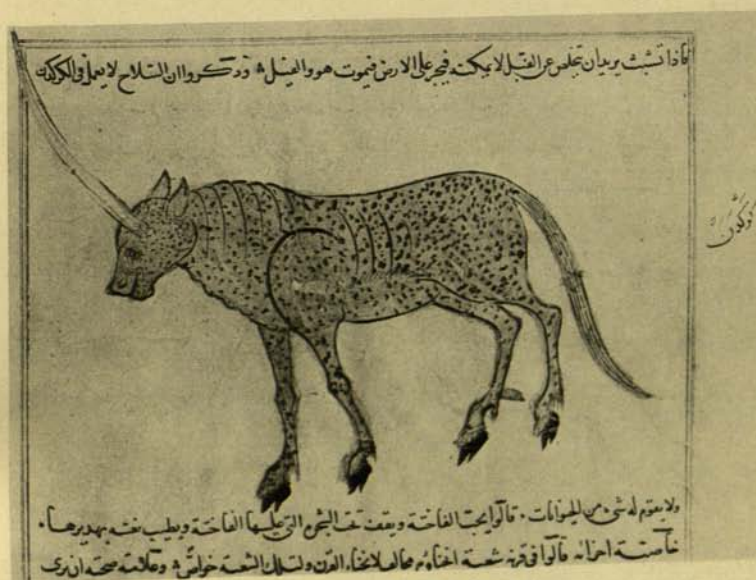 فاذا تشبث يريد ان يتخلص عن الفيل لا يمكنه فيخر على الارض فيموت هو والفيل ۞ وذكروا ان السلاح لا يعمل فى الكركدن
كركدن
ولا يقوم له شىء من الحيوانات . قالوا يحب الفاختة ويقف تحت الشجرة التى عليها الفاختة ويطيب نفسه بهديرها .
خاصية اجزائه قالوا فى قرنه شعبة مخالف لانحناء القرن ولتلك الشعبة خواص وعلامة صحته ان يرى